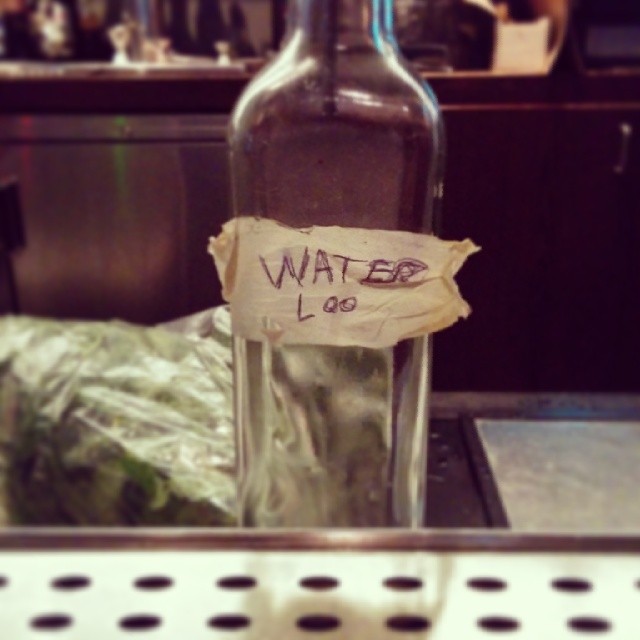 WATER
Loo